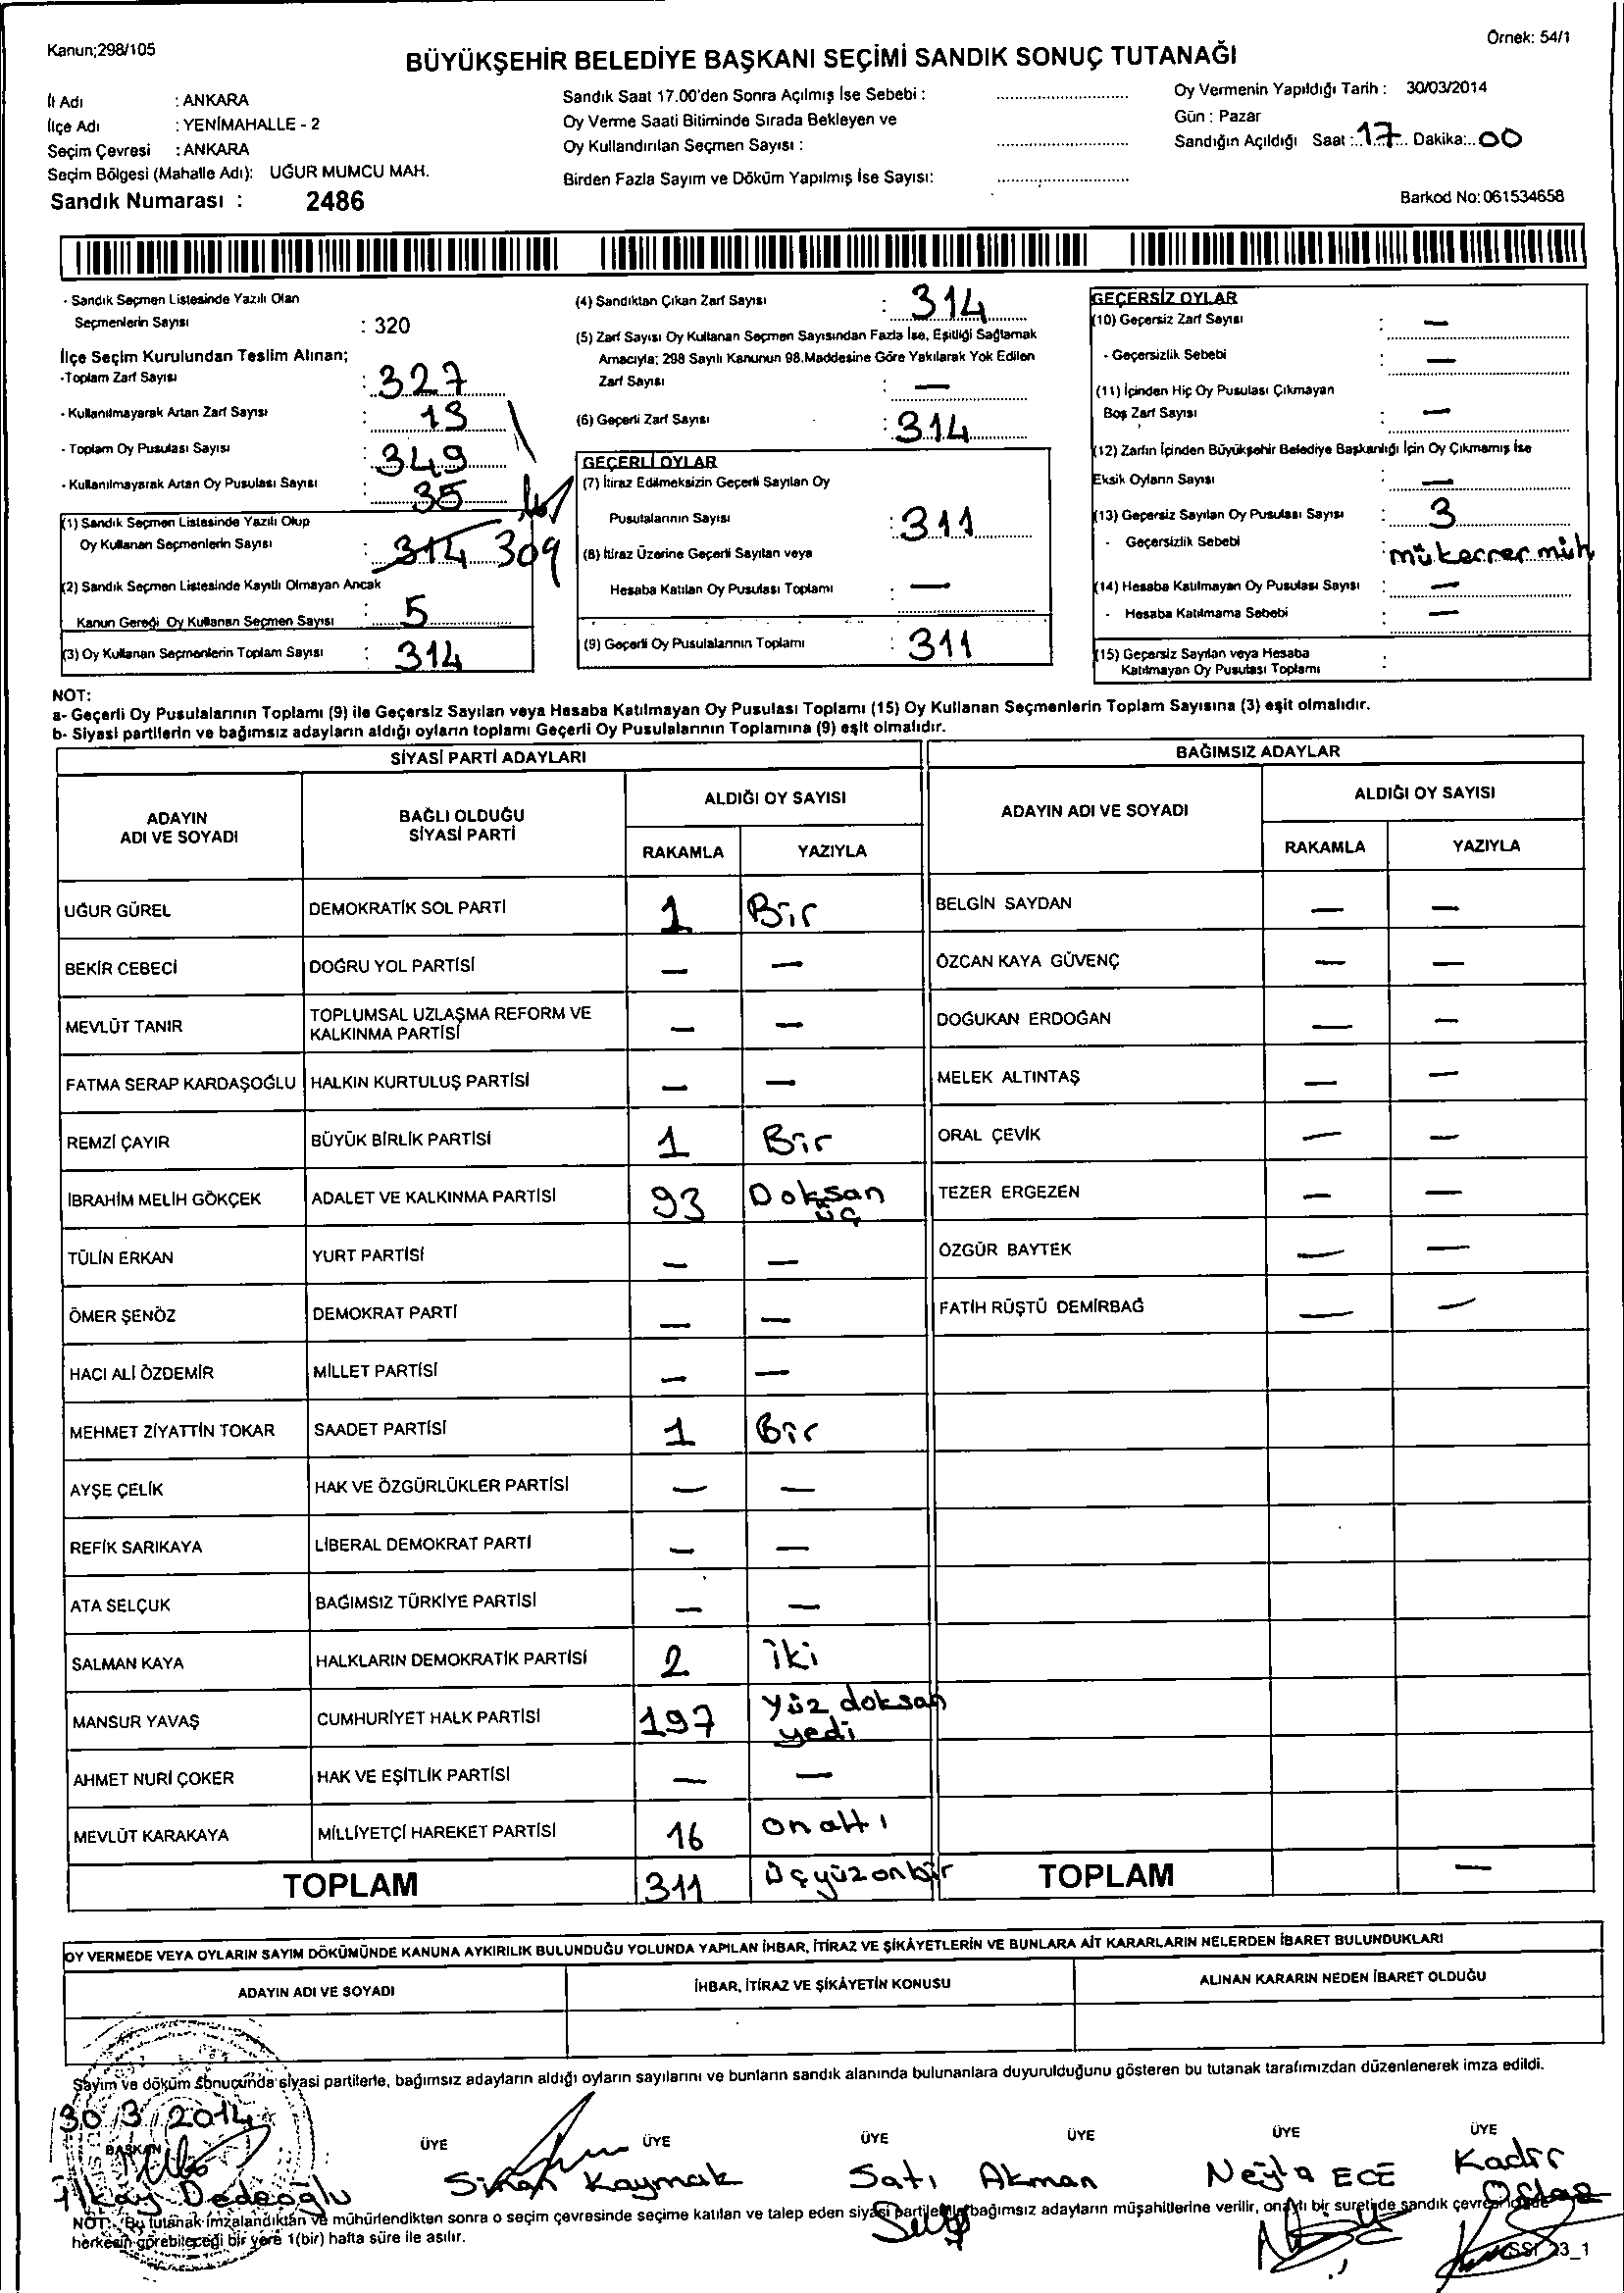 Kanun;298/105
Örnek: 54/1
BÜYÜKŞEHİR BELEDİYE BAŞKANI SEÇİMİ SANDIK SONUÇ TUTANAĞI
İl Adı : ANKARA
İlçe Adı : YENİMAHALLE - 2
Seçim Çevresi : ANKARA
Seçim Bölgesi (Mahalle Adı): UĞUR MUMCU MAH.
Sandık Numarası : 2486
Sandık Saat 17.00'den Sonra Açılmış İse Sebebi :
Oy Verme Saati Bitiminde Sırada Bekleyen ve
Oy Kullandırılan Seçmen Sayısı :
Birden Fazla Sayım ve Döküm Yapılmış İse Sayısı:
Oy Vermenin Yapıldığı Tarih : 30/03/2014
Gün : Pazar
Sandığın Açıldığı Saat : 17 Dakika: 00
Barkod No: 061534658
- Sandık Seçmen Listesinde Yazılı Olan
Seçmenlerin Sayısı : 320
İlçe Seçim Kurulundan Teslim Alınan;
-Toplam Zarf Sayısı : 327
- Kullanılmayarak Artan Zarf Sayısı : 13
- Toplam Oy Pusulası Sayısı : 349
- Kullanılmayarak Artan Oy Pusulası Sayısı : 35
(1) Sandık Seçmen Listesinde Yazılı Olup
Oy Kullanan Seçmenlerin Sayısı : 314 309
(2) Sandık Seçmen Listesinde Kayıtlı Olmayan Ancak
Kanun Gereği Oy Kullanan Seçmen Sayısı : 5
(3) Oy Kullanan Seçmenlerin Toplam Sayısı : 314
(4) Sandıktan Çıkan Zarf Sayısı : 314
(5) Zarf Sayısı Oy Kullanan Seçmen Sayısından Fazla İse, Eşitliği Sağlamak
Amacıyla; 298 Sayılı Kanunun 98.Maddesine Göre Yakılarak Yok Edilen
Zarf Sayısı : —
(6) Geçerli Zarf Sayısı : 314
GEÇERLİ OYLAR
(7) İtiraz Edilmeksizin Geçerli Sayılan Oy
Pusulalarının Sayısı : 311
(8) İtiraz Üzerine Geçerli Sayılan veya
Hesaba Katılan Oy Pusulası Toplamı : —
(9) Geçerli Oy Pusulalarının Toplamı : 311
GEÇERSİZ OYLAR
(10) Geçersiz Zarf Sayısı : —
- Geçersizlik Sebebi : —
(11) İçinden Hiç Oy Pusulası Çıkmayan
Boş Zarf Sayısı : —
(12) Zarfın İçinden Büyükşehir Belediye Başkanlığı İçin Oy Çıkmamış İse
Eksik Oyların Sayısı : —
(13) Geçersiz Sayılan Oy Pusulası Sayısı : 3
- Geçersizlik Sebebi : mükerrer müh
(14) Hesaba Katılmayan Oy Pusulası Sayısı : —
- Hesaba Katılmama Sebebi : —
(15) Geçersiz Sayılan veya Hesaba
Katılmayan Oy Pusulası Toplamı :
NOT:
a- Geçerli Oy Pusulalarının Toplamı (9) ile Geçersiz Sayılan veya Hesaba Katılmayan Oy Pusulası Toplamı (15) Oy Kullanan Seçmenlerin Toplam Sayısına (3) eşit olmalıdır.
b- Siyasi partilerin ve bağımsız adayların aldığı oyların toplamı Geçerli Oy Pusulalarının Toplamına (9) eşit olmalıdır.
SİYASİ PARTİ ADAYLARI
BAĞIMSIZ ADAYLAR
ADAYIN ADI VE SOYADI
BAĞLI OLDUĞU SİYASİ PARTİ
ALDIĞI OY SAYISI
RAKAMLA YAZIYLA
ADAYIN ADI VE SOYADI
ALDIĞI OY SAYISI
RAKAMLA YAZIYLA
UĞUR GÜREL DEMOKRATİK SOL PARTİ 1 Bir BELGİN SAYDAN — —
BEKİR CEBECİ DOĞRU YOL PARTİSİ — — ÖZCAN KAYA GÜVENÇ — —
MEVLÜT TANIR TOPLUMSAL UZLAŞMA REFORM VE KALKINMA PARTİSİ — — DOĞUKAN ERDOĞAN — —
FATMA SERAP KARDAŞOĞLU HALKIN KURTULUŞ PARTİSİ — — MELEK ALTINTAŞ — —
REMZİ ÇAYIR BÜYÜK BİRLİK PARTİSİ 1 Bir ORAL ÇEVİK — —
İBRAHİM MELİH GÖKÇEK ADALET VE KALKINMA PARTİSİ 93 Doksan üç TEZER ERGEZEN — —
TÜLİN ERKAN YURT PARTİSİ — — ÖZGÜR BAYTEK — —
ÖMER ŞENÖZ DEMOKRAT PARTİ — — FATİH RÜŞTÜ DEMİRBAĞ — —
HACI ALİ ÖZDEMİR MİLLET PARTİSİ — —
MEHMET ZİYATTİN TOKAR SAADET PARTİSİ 1 Bir
AYŞE ÇELİK HAK VE ÖZGÜRLÜKLER PARTİSİ — —
REFİK SARIKAYA LİBERAL DEMOKRAT PARTİ — —
ATA SELÇUK BAĞIMSIZ TÜRKİYE PARTİSİ — —
SALMAN KAYA HALKLARIN DEMOKRATİK PARTİSİ 2 iki
MANSUR YAVAŞ CUMHURİYET HALK PARTİSİ 197 yüz doksan yedi
AHMET NURİ ÇOKER HAK VE EŞİTLİK PARTİSİ — —
MEVLÜT KARAKAYA MİLLİYETÇİ HAREKET PARTİSİ 16 on altı
TOPLAM 311 üçyüzonbir TOPLAM —
OY VERMEDE VEYA OYLARIN SAYIM DÖKÜMÜNDE KANUNA AYKIRILIK BULUNDUĞU YOLUNDA YAPILAN İHBAR, İTİRAZ VE ŞİKÂYETLERİN VE BUNLARA AİT KARARLARIN NELERDEN İBARET BULUNDUKLARI
ADAYIN ADI VE SOYADI
İHBAR, İTİRAZ VE ŞİKÂYETİN KONUSU
ALINAN KARARIN NEDEN İBARET OLDUĞU
Sayım ve döküm sonucunda siyasi partilerle, bağımsız adayların aldığı oyların sayılarını ve bunların sandık alanında bulunanlara duyurulduğunu gösteren bu tutanak tarafımızdan düzenlenerek imza edildi.
30/3/2014
BAŞKAN ÜYE ÜYE ÜYE ÜYE ÜYE ÜYE
İlkay Dedeoğlu Sinan Kaymak Satı Akman Neyla ECE Kadir
NOT: Bu tutanak imzalandıktan ve mühürlendikten sonra o seçim çevresinde seçime katılan ve talep eden siyasi partilerle bağımsız adayların müşahitlerine verilir, onaylı bir suretide sandık çevresi
herkesin görebileceği bir yere 1(bir) hafta süre ile asılır.